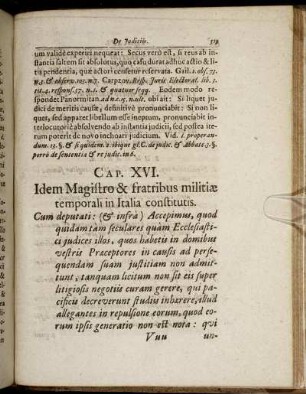 De Judiciis. 519
um valide experiri nequeat: Secus verò est, si reus ab in-
stantia saltem sit absolutus, quia casu durat adhuc actio & li-
tis pendentia, quæ actori censetur reservata. Gail. 1. obs. 77.
n. 2. & observ. 103. n. 7. Carpzou. Resp. Juris Electoral. lib. 3.
tit. 4. respons. 17. n. 1. & quatuor seqq. Eodem modo re-
spondet Panormitan ad c. 15. n. ult. ubi ait: Si liquet judi-
ci de meritis causæ, definitivè pronunciabit: Si non li-
quet, sed apparet libellum esse ineptum, pronunciabit in-
terlocutoriè absolvendo ab instantia judicii, sed postea ite-
rum poterit de novo inchoari judicium. Vid. l. properan-
dum. 13. §. & siquidem. 2. ibique gl. C. de judic. & Abbas c. 3.
porrò de sententia & re judic. in 6.
CAP. XVI.
Idem Magistro & fratribus militiæ
temporali in Italia constitutis.
Cum deputati: (& infrà) Accepimus, quod
quidam tam seculares quàm Ecclesiasti-
ci judices illos, quos habetis in domibus
vestris Præceptores in causis ad perse-
quendam suam justitiam non admit-
tunt, tanquam licitum non sit eis super
litigiosis negotiis curam gerere, qui pa-
cificu decreverunt studiu inhærere, illud
allegantes in repulsione eorum, quod eo-
rum ipsis generatio non est nota: qui
Vuu un-